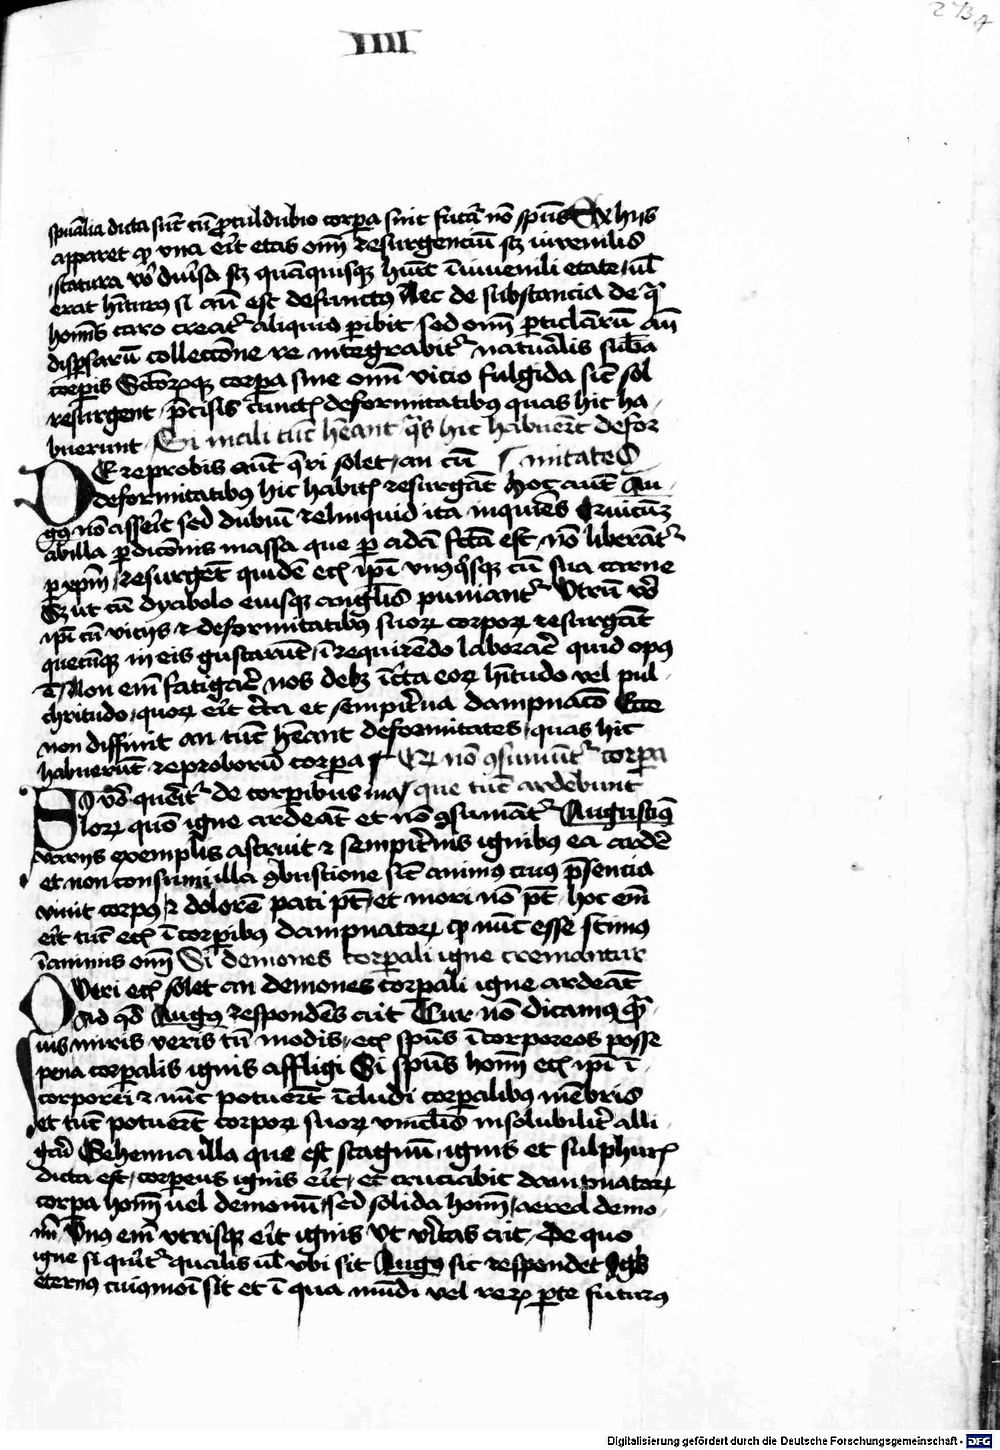 IIII
273
spūalia dicta sūt cū ꝓculdubio corpa sint futa nō spūs Ex hijs
apparet qꝫ vna erit etas om̄ resurgenciū scꝫ iuvenilis
statura vō diūsa scꝫ quā quisqꝫ huit ī iuvenili etate ul
erat hiturus si añ est defunctus Nec de substancia de qua
homīs caro creatᷣ aliquid pibit sed om̄ pticlarū añ
dispsarū colleccione re integrabitᷣ naturalis suba
corpis Sctorꝫqꝫ corpa sine omi vicio fulgida sic sol
resurgent p̄cisis cunctis deformitatibꝰ quas hic ha
buerunt Si mali tūc heant qͣs hic habuert defor
mitates
DE reprobis aut q̄ri solet an cū
deformitatibꝰ hic habitis resurgāt Hoc aut Au
gꝰ nō asserit sed dubiū relinquid ita inquiēs Quicūqꝫ
ab illa pdicōnis massa que p adā fcā est nō liberātᷣ
p xpm̄ resurgēt quidē eciā ipi vnꝰqͥsqꝫ cū sua carne
Sꝫ ut cū dyabolo eiusqꝫ anglis puniantᷣ Vtrū vo
ipi cū vicijs et deformitatibꝰ suorꝝ corporꝝ resurgāt
quecūqꝫ in eis gustarūt ī requirēdo laborare quid opus
ē Non em̄ fatigare nos debꝫ īcta eorꝝ hitudo vel pul
chritudo quorꝝ erit cta et sempitna dampnacō Ecce
non diffinit an tūc heant deformitates quas hic
habuerūt reproborū corpa Qꝫ nō ꝯsumūtᷣ corpa
SI vō queritᷣ de corpibus ma que tūc ardebunt
lorꝝ quō igne ardeāt et nō ꝯsumātᷣ Augustinꝰ
varijs exemplis astruit et sempitnis ignibus ea ardē
et non consumi illa ꝯbustione sic animus cuiꝰ p̄sencia
viuit corpꝰ et dolorē pati pt et mori nō pt hoc em̄
erit tūc eciā ī corpibꝰ dampnatorꝝ qꝫ nūc esse scimus
ī animis om̄ Si demones corpali igne cremantur
QVeri eciā solet an demones corpali igne ardeāt
Ad qd Augꝰ respondēs ait Cur nō dicamꝰ qͣ
uis miris veris tn̄ modis eciā spūs īcorporeos posse
pena corpalis ignis affligi Si spūs hom̄ eciā ipi ī
corporei et nūc potuert īcludi corpalibus mēbris
et tūc potuert corporꝝ suorꝝ vinclis insolubiliter alli
gari Gehenna illa que est stagnū ignis et sulphuris
dicta est corpeus ignis erit et cruciabit dampnatorꝝ
corpa hom̄ uel demonū sed solida hom̄ aerea demo
nū Vnus em̄ vtrisqꝫ erit ignis ut vitas ait De quo
igne si quritᷣ qualis ul vbi sit Augꝰ sic respondet Ignis
eternus cuiusmōi sit et ī qua mūdi vel rerꝝ pte futurus
Digitalisierung gefördert durch die Deutsche Forschungsgemeinschaft - DFG